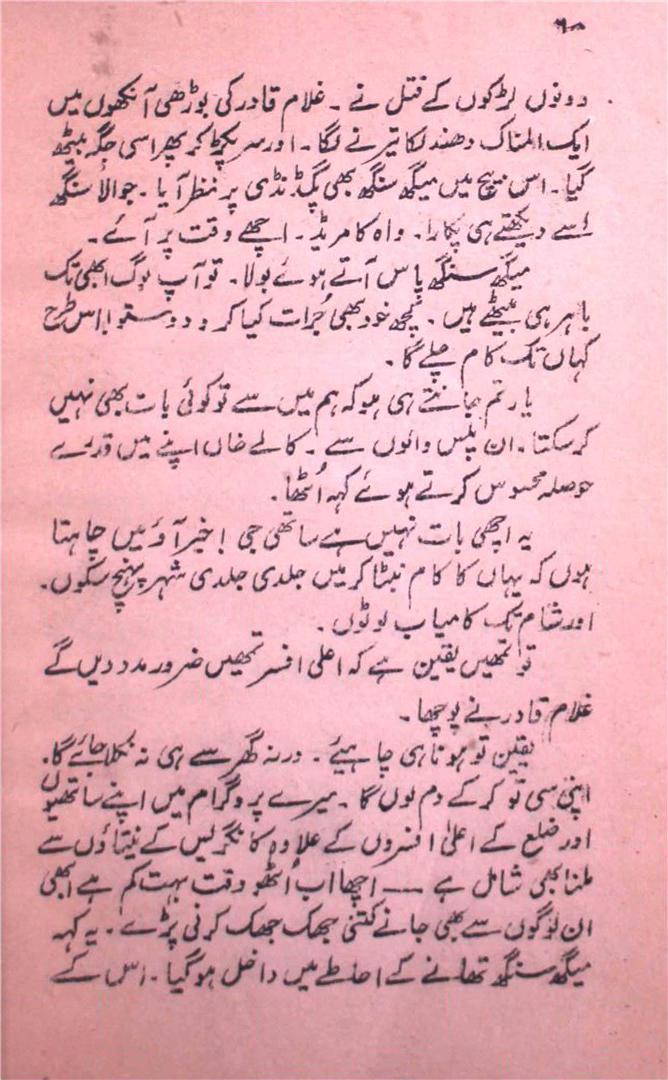 ۶۰
دونوں لڑکوں کے قتل نے ۔ غلام قادر کی بوڑھی آنکھوں میں
ایک المناک دھندلکا تیرنے لگا ۔ اور سر پکڑ کر پھر اسی جگہ بیٹھ
گیا ۔ اس بیچ میں میگھ سنگھ بھی پگڈنڈی پر نظر آیا ۔ جوالا سنگھ
اُسے دیکھتے ہی پکارا ۔ واہ کامریڈ ۔ اچھے وقت پر آئے ۔
میگھ سنگھ پاس آتے ہوئے بولا ۔ تو آپ لوگ ابھی تک
باہر ہی بیٹھے ہیں ۔ کچھ خود بھی جُرات کیا کرو دوستو! اس طرح
کہاں تک کام چلے گا ۔
یار تم جانتے ہی ہو کہ ہم میں سے تو کوئی بات بھی نہیں
کر سکتا ۔ ان پلس والوں سے ۔ کالے خاں اپنے میں قدرے
حوصلہ محسوس کرتے ہوئے کہہ اُٹھا ۔
یہ اچھی بات نہیں ہے ساتھی جی ! خیر آؤ میں چاہتا
ہوں کہ یہاں کا کام نبٹا کر میں جلدی جلدی شہر پہنچ سکوں ۔
اور شام تک کامیاب لوٹوں ۔
تو تمھیں یقین ہے کہ اعلیٰ افسر تمھیں ضرور مدد دیں گے
غلام قادر نے پوچھا ۔
یقین تو ہونا ہی چاہیئے ۔ ورنہ گھر سے ہی نہ نکلا جائے گا ۔
اپنی سی تو کر کے دم لوں گا ۔ میرے پروگرام میں اپنے ساتھیوں
اور ضلع کے اعلیٰ افسروں کے علاوہ کانگریس کے نیتاؤں سے
ملنا بھی شامل ہے —— اچھا اب اُٹھو وقت بہت کم ہے ابھی
ان لوگوں سے بھی جانے کتنی جھک جھک کرنی پڑے ۔ یہ کہہ
میگھ سنگھ تھانے کے احاطے میں داخل ہو گیا ۔ اس کے